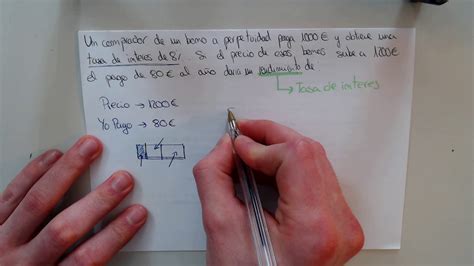 Un comprador de un bono a perpetuidad paga 1000€ y obtiene una
tasa de interes de 8%. Si el precio de esos bonos sube a 1200€
el pago de 80€ al año daria un rendimiento de
→ Tasa de interes
Precio → 1200€
Yo Pago → 80€